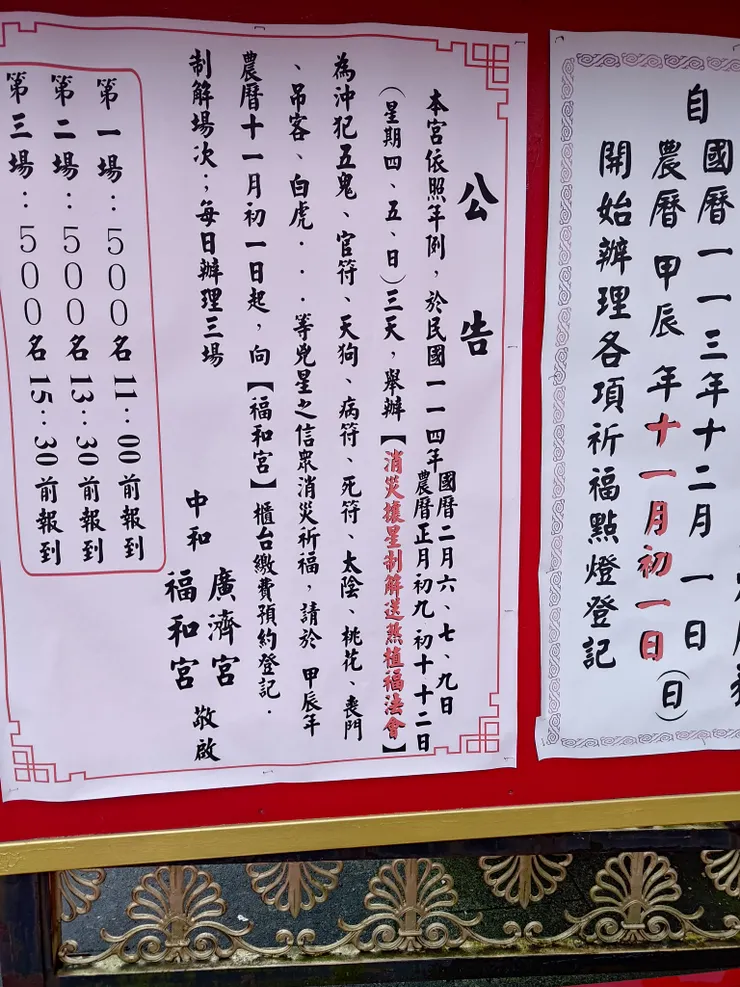 自
國曆一一三年十二月一日(日)
農曆甲辰年十一月初一日
開始辦理各項祈福點燈登記
公告
本宮依照年例，於民國一一四年
國曆二月六、七、九日
農曆正月初九 初十 十二日
(星期四、五、日)三天，舉辦【消災攘星制解送煞植福法會】
為沖犯五鬼、官符、天狗、病符、死符、太陰、桃花、喪門
、吊客、白虎．．．等兇星之信眾消災祈福，請於 甲辰年
農曆十一月初一日起，向【福和宮】櫃台繳費預約登記．
制解場次；每日辦理三場
中和
廣濟宮
福和宮
敬啟
第一場：500名 11：00前報到
第二場：500名 13：30前報到
第三場：500名 15：30前報到